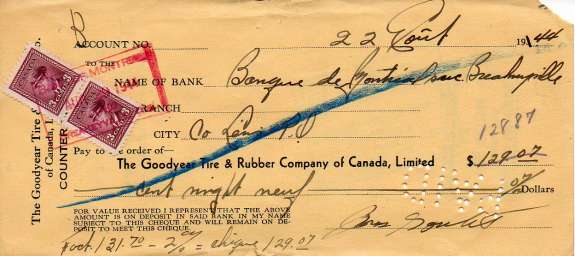 ACCOUNT NO. 22 Août 1944
TO THE
NAME OF BANK Banque de
BRANCH
CITY Co Lévis P.Q
12887
Pay to the order of
The Goodyear Tire & Rubber Company of Canada, Limited $ 129.07
cent vingt neuf 07/ Dollars
FOR VALUE RECEIVED I REPRESENT THAT THE ABOVE
AMOUNT IS ON DEPOSIT IN SAID BANK IN MY NAME
SUBJECT TO THIS CHEQUE AND WILL REMAIN ON DE-
POSIT TO MEET THIS CHEQUE.
Fact 131.70 - 2% = chèque 129.07
The Goodyear Tire &
of Canada, L
COUNTER
CANADA
3 3
CANADA
3 3
MONTREAL